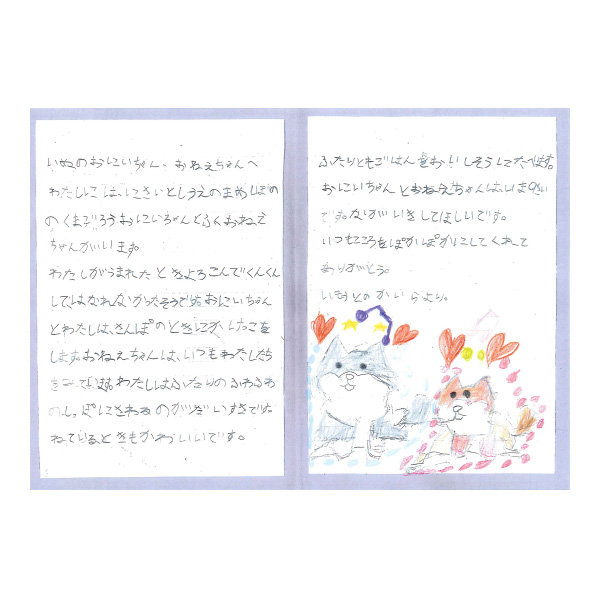 いぬのおにいちゃん、おねえちゃんへ
わたしには、にさいとしうえのまめしばの
のくまごろうおにいちゃんとふくおねえ
ちゃんがいます。
わたしがうまれたときよろこんでくんくん
してはなれなかったそうです。おにいちゃん
とわたしは、さんぽのときにかけっこを
します。おねえちゃんは、いつもわたしたち
をみています。わたしはふたりのふわふわ
のしっぽにさわるのがだいすきです。
ねているときもかわいいです。
ふたりともごはんをおいしそうにたべます。
おにいちゃんとおねえちゃんはいま
です。ながいきしてほしいです。
いつもこころをぽかぽかにしてくれて
ありがとう。
いもうとの より。